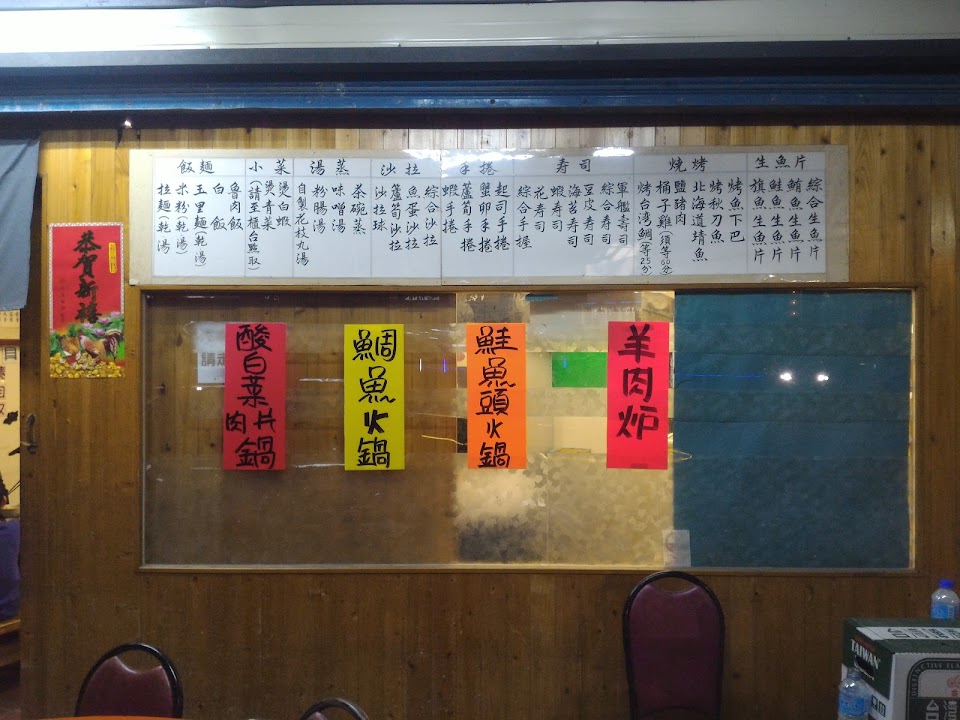 生魚片
綜合生魚片
鮪魚生魚片
鮭魚生魚片
旗魚生魚片
燒烤
烤魚下巴
烤秋刀魚
北海道鯖魚
鹽豬肉
桶子雞(須等60分)
烤台湾鯛(等25分)
寿司
軍艦壽司
綜合寿司
豆皮寿司
海苔寿司
蝦寿司
花寿司
手捲
綜合手捲
起司手捲
蟹卵手捲
蘆筍手捲
蝦手捲
沙拉
綜合沙拉
魚蛋沙拉
蘆筍沙拉
沙拉球
湯蒸
茶碗蒸
味噌湯
粉腸湯
自製花枝丸湯
小菜
燙白蝦
燙青菜
(請至櫃台點取)
飯麵
魯肉飯
白飯
玉里麵(乾湯)
米粉(乾湯)
拉麵(乾湯)
恭賀新禧
酸白菜肉片鍋
鯛魚火鍋
鮭魚頭火鍋
羊肉炉
請走
TAIWAN